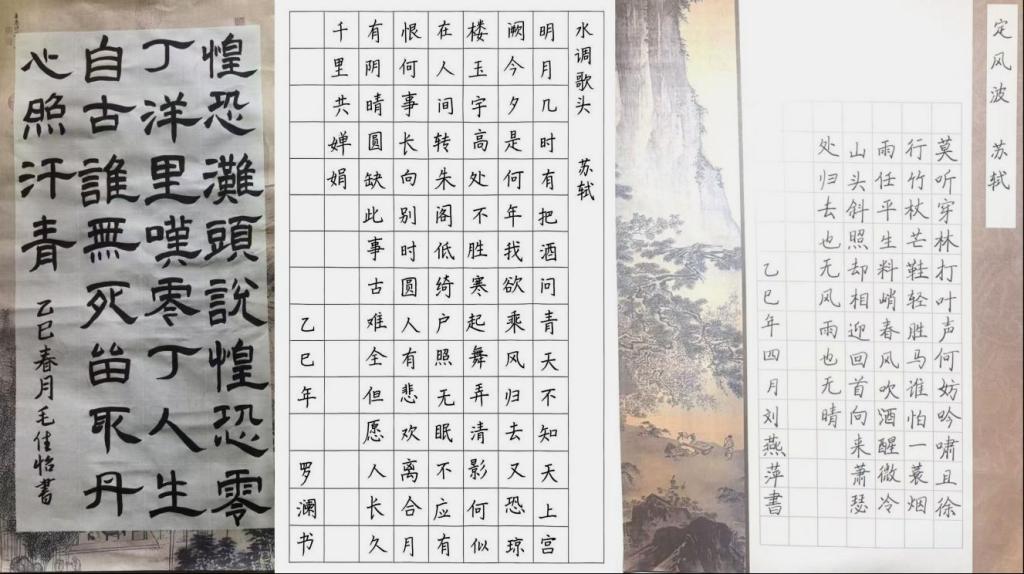 惶恐灘頭說惶恐零
丁洋里嘆零丁人生
自古誰無死留取丹
心照汗青 乙巳春月毛佳怡書
水调歌头 苏轼
明月几时有把酒问青天不知天上宫
阙今夕是何年我欲乘风归去又恐琼
楼玉宇高处不胜寒起舞弄清影何似
在人间转朱阁低绮户照无眠不应有
恨何事长向别时圆人有悲欢离合月
有阴晴圆缺此事古难全但愿人长久
千里共婵娟
乙巳年 罗澜书
定风波 苏轼
莫听穿林打叶声何妨吟啸且徐
行竹杖芒鞋轻胜马谁怕一蓑烟
雨任平生料峭春风吹酒醒微冷
山头斜照却相迎回首向来萧瑟
处归去也无风雨也无晴
乙巳年四月刘燕萍書